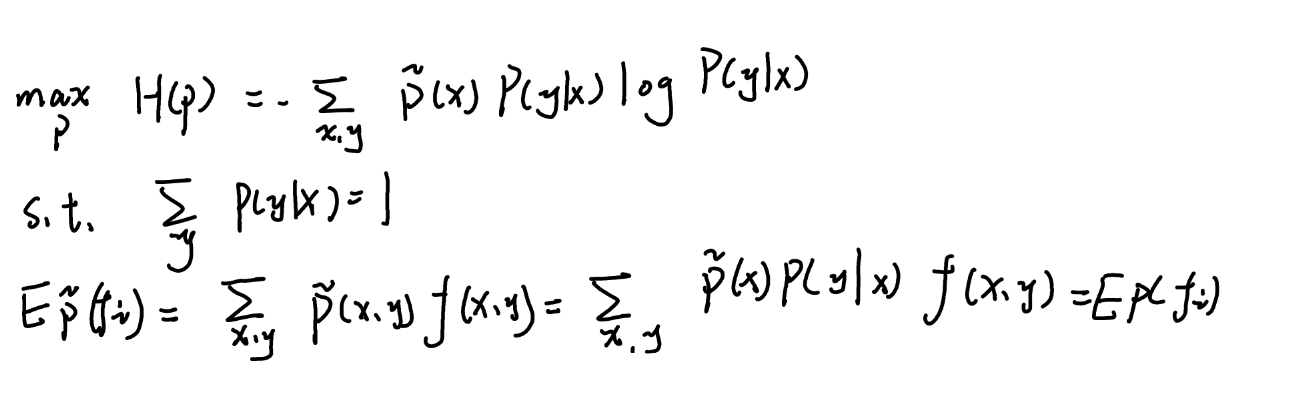 max_P H(p) = - ∑_{x,y} p̃(x) P(y|x) log P(y|x)
s.t. ∑_y P(y|x) = 1
E p̃(f_i) = ∑_{x,y} p̃(x,y) f(x,y) = ∑_{x,y} p̃(x) P(y|x) f(x,y) = E p(f_i)